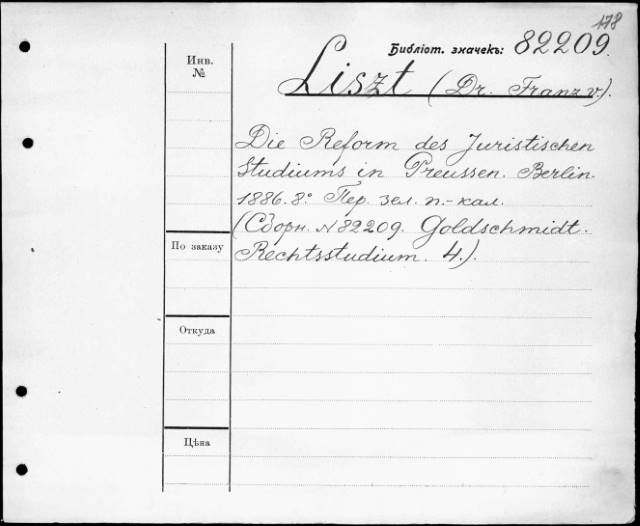 178
Библіот. значекъ: 82209.
Инв.
№
Liszt (Dr. Franz v.).
Die Reform des Juristischen
Studiums in Preussen. Berlin.
1886. 8° Пер. зел. п.-кал.
(Сборн. № 82209. Goldschmidt.
По заказу
Rechtsstudium. 4.).
Откуда
Цѣна